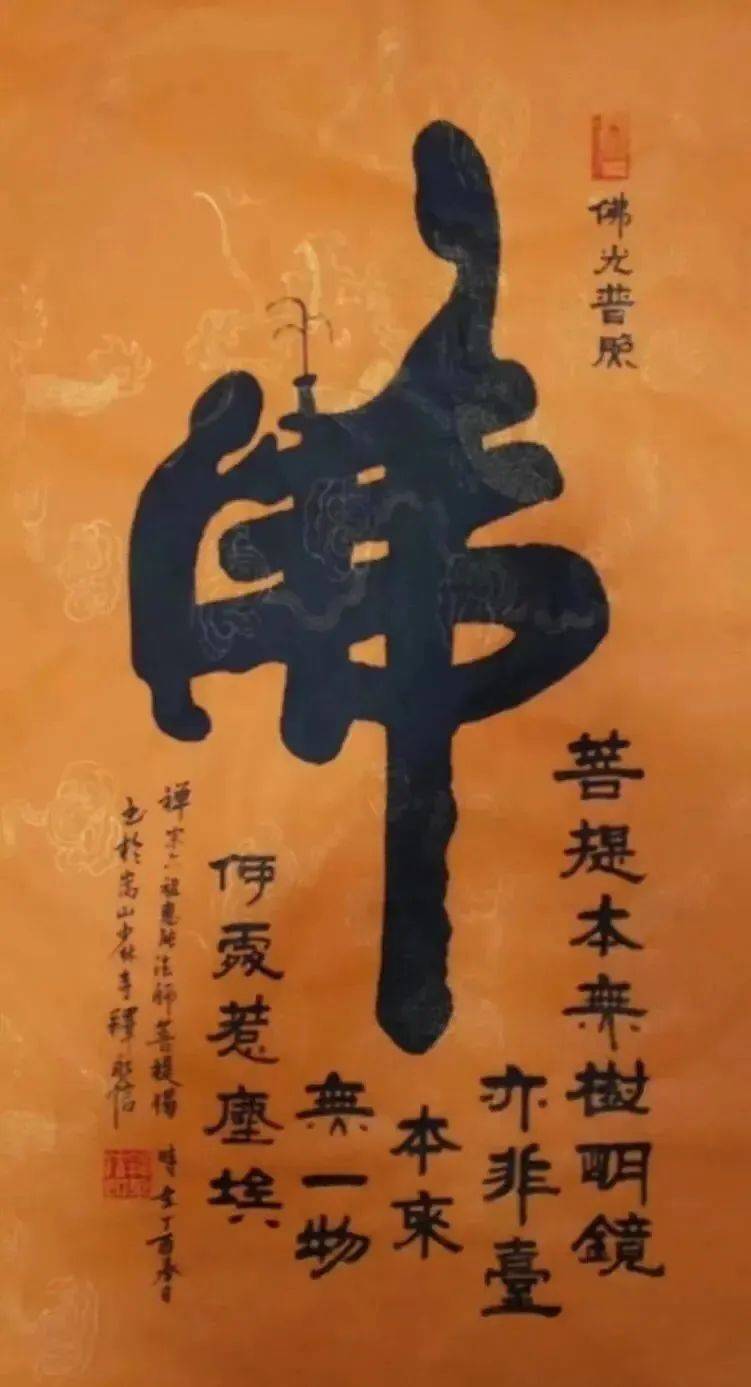 佛光普照
佛
菩提本無樹明鏡
亦非臺
本來
無一物
何處惹塵埃
禪宗六祖惠能法師菩提偈 時在丁酉春日
書於嵩山少林寺釋永信